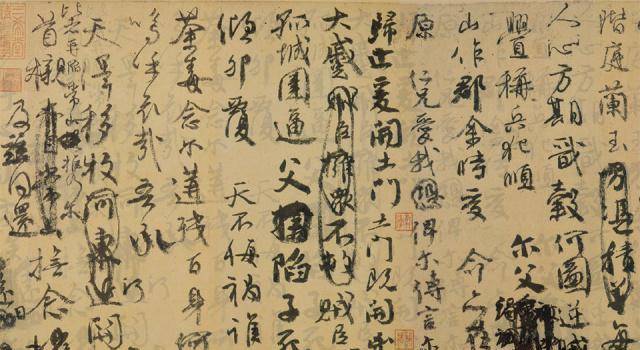 階庭蘭玉方憑積善每
人心方期戩穀何圖逆賊
釁稱兵犯順爾父
山作郡余時受命亦在
原仁兄愛我俾爾傳言
歸止爰開土門土門既開
大蹙賊臣擁眾不救賊臣
孤城圍逼父陷子死
傾卵覆天不悔禍誰
荼毒念爾遘殘百身何
嗚呼哀哉吾承
天澤移牧河東近關
比者再陷常山攜爾
首櫬
及茲同還撫念